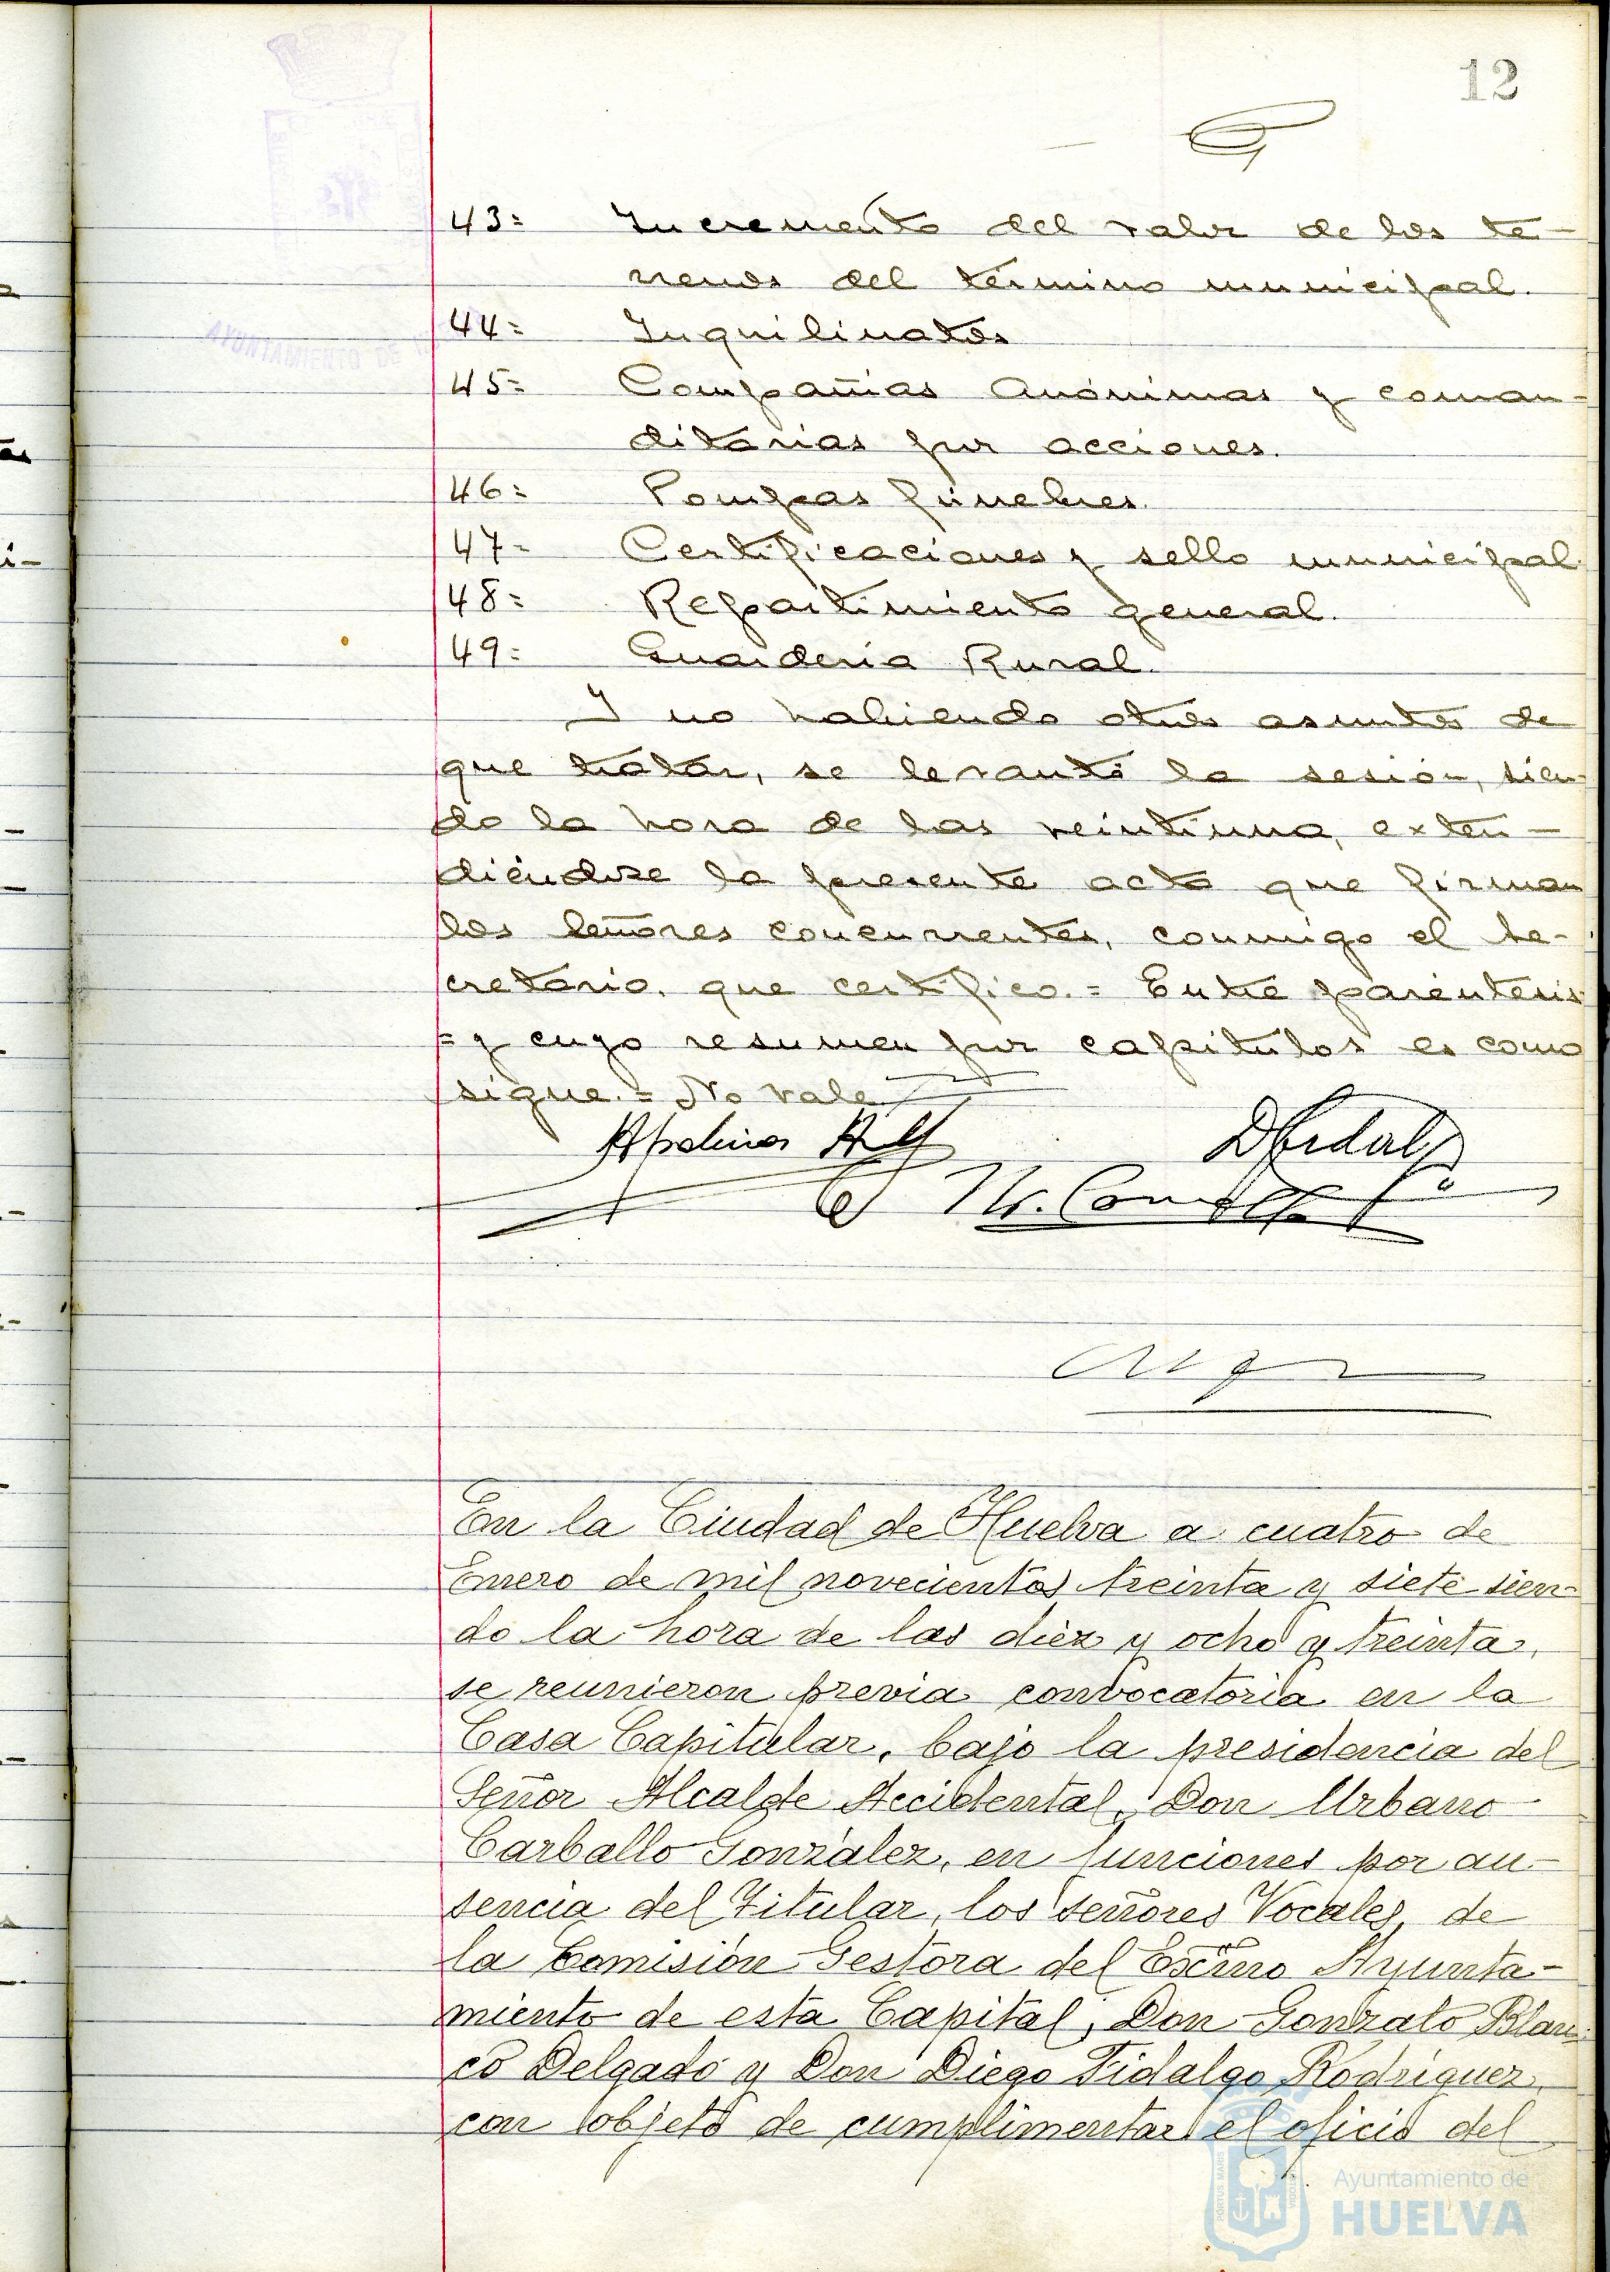 12
43= Incremento del valor de los te-
rrenos del término municipal.
44= Inquilinatos
45= Compañias Anónimas y coman-
ditarias por acciones.
46= Pompas fúnebres.
47- Certificaciones y sello municipal.
48= Repartimiento general.
49= Guardería Rural.
Y no habiendo otros asuntos de
que tratar, se levantó la sesión, sien-
do la hora de las veintiuna, exten-
diéndose la presente acta que firman
los señores concurrentes, conmigo el Se-
cretario, que certifico.= Entre paréntesis
= y cuyo resumen por capítulos es como
sigue.= No vale
En la Ciudad de Huelva a cuatro de
Enero de mil novecientos treinta y siete sien-
do la hora de las diez y ocho y treinta,
se reunieron previa convocatoria en la
Casa Capitular, bajo la presidencia del
Señor Alcalde Accidental, Don Urbano
Carballo González, en funciones por au-
sencia del Titular, los señores Vocales, de
la Comisión Gestora del Excmo Ayunta-
miento de esta Capital, Don Gonzalo Blan-
co Delgado y Don Diego Fidalgo Rodríguez,
con objeto de cumplimentar el oficio del
AYUNTAMIENTO DE
PORTUS MARIS
Ayuntamiento de
HUELVA